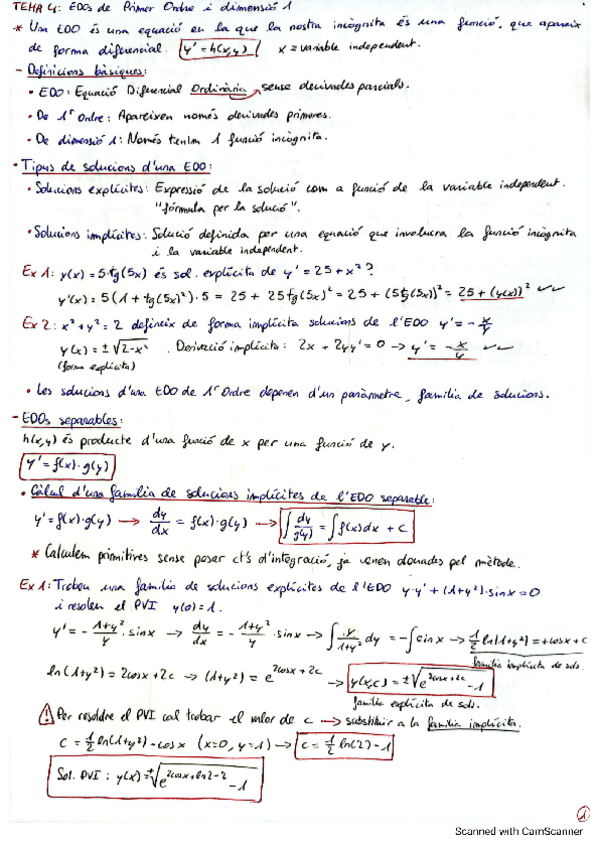 TEMA 4: EDOs de Primer Ordre i dimensió 1
* Una EDO és una equació en la que la nostra incògnita és una funció, que apareix
de forma diferencial. y' = h(x,y) x = variable independent.
- Definicions bàsiques:
• EDO: Equació Diferencial Ordinària → sense derivades parcials.
• De 1r Ordre: Apareixen només derivades primeres.
• De dimensió 1: Només tenim 1 funció incògnita.
• Tipus de solucions d'una EDO:
• Solucions explícites: Expressió de la solució com a funció de la variable independent.
"fórmula per la solució".
• Solucions implícites: Solució definida per una equació que involucra la funció incògnita
i la variable independent.
Ex 1: y(x) = 5·tg(5x) és sol. explícita de y' = 25 + x² ?
y'(x) = 5(1 + tg(5x)²)·5 = 25 + 25tg(5x)² = 25 + (5tg(5x))² = 25 + (y(x))² ✓✓
Ex 2: x² + y² = 2 defineix de forma implícita solucions de l'EDO y' = -x/y
y(x) = ±√(2-x²) . Derivació implícita: 2x + 2yy' = 0 → y' = -x/y ✓✓
(forma explícita)
• Les solucions d'una EDO de 1r Ordre depenen d'un paràmetre, família de solucions.
- EDOs separables:
h(x,y) és producte d'una funció de x per una funció de y.
y' = f(x)·g(y)
• Càlcul d'una família de solucions implícites de l'EDO separable:
y' = f(x)·g(y) → dy/dx = f(x)·g(y) → ∫ dy/g(y) = ∫ f(x)dx + C
* Calculem primitives sense posar ct's d'integració, ja venen donades pel mètode.
Ex 1: Trobeu una família de solucions explícites de l'EDO y·y' + (1+y²)·sinx = 0
i resoleu el PVI y(0) = 1.
y' = - (1+y²)/y · sinx → dy/dx = - (1+y²)/y · sinx → ∫ y/(1+y²) dy = -∫ sinx → 1/2 ln(1+y²) = +cosx + C
família implícita de sols.
ln(1+y²) = 2cosx + 2c → (1+y²) = e^(2cosx + 2c) → y(x,c) = ±√(e^(2cosx + 2c) - 1)
família explícita de sols.
⚠ Per resoldre el PVI cal trobar el valor de c → substituir a la família implícita.
C = 1/2 ln(1+y²) - cosx (x=0, y=1) → C = 1/2 ln(2) - 1
Sol. PVI: y(x) = ±√(e^(2cosx + ln2 - 2) - 1)
1
Scanned with CamScanner